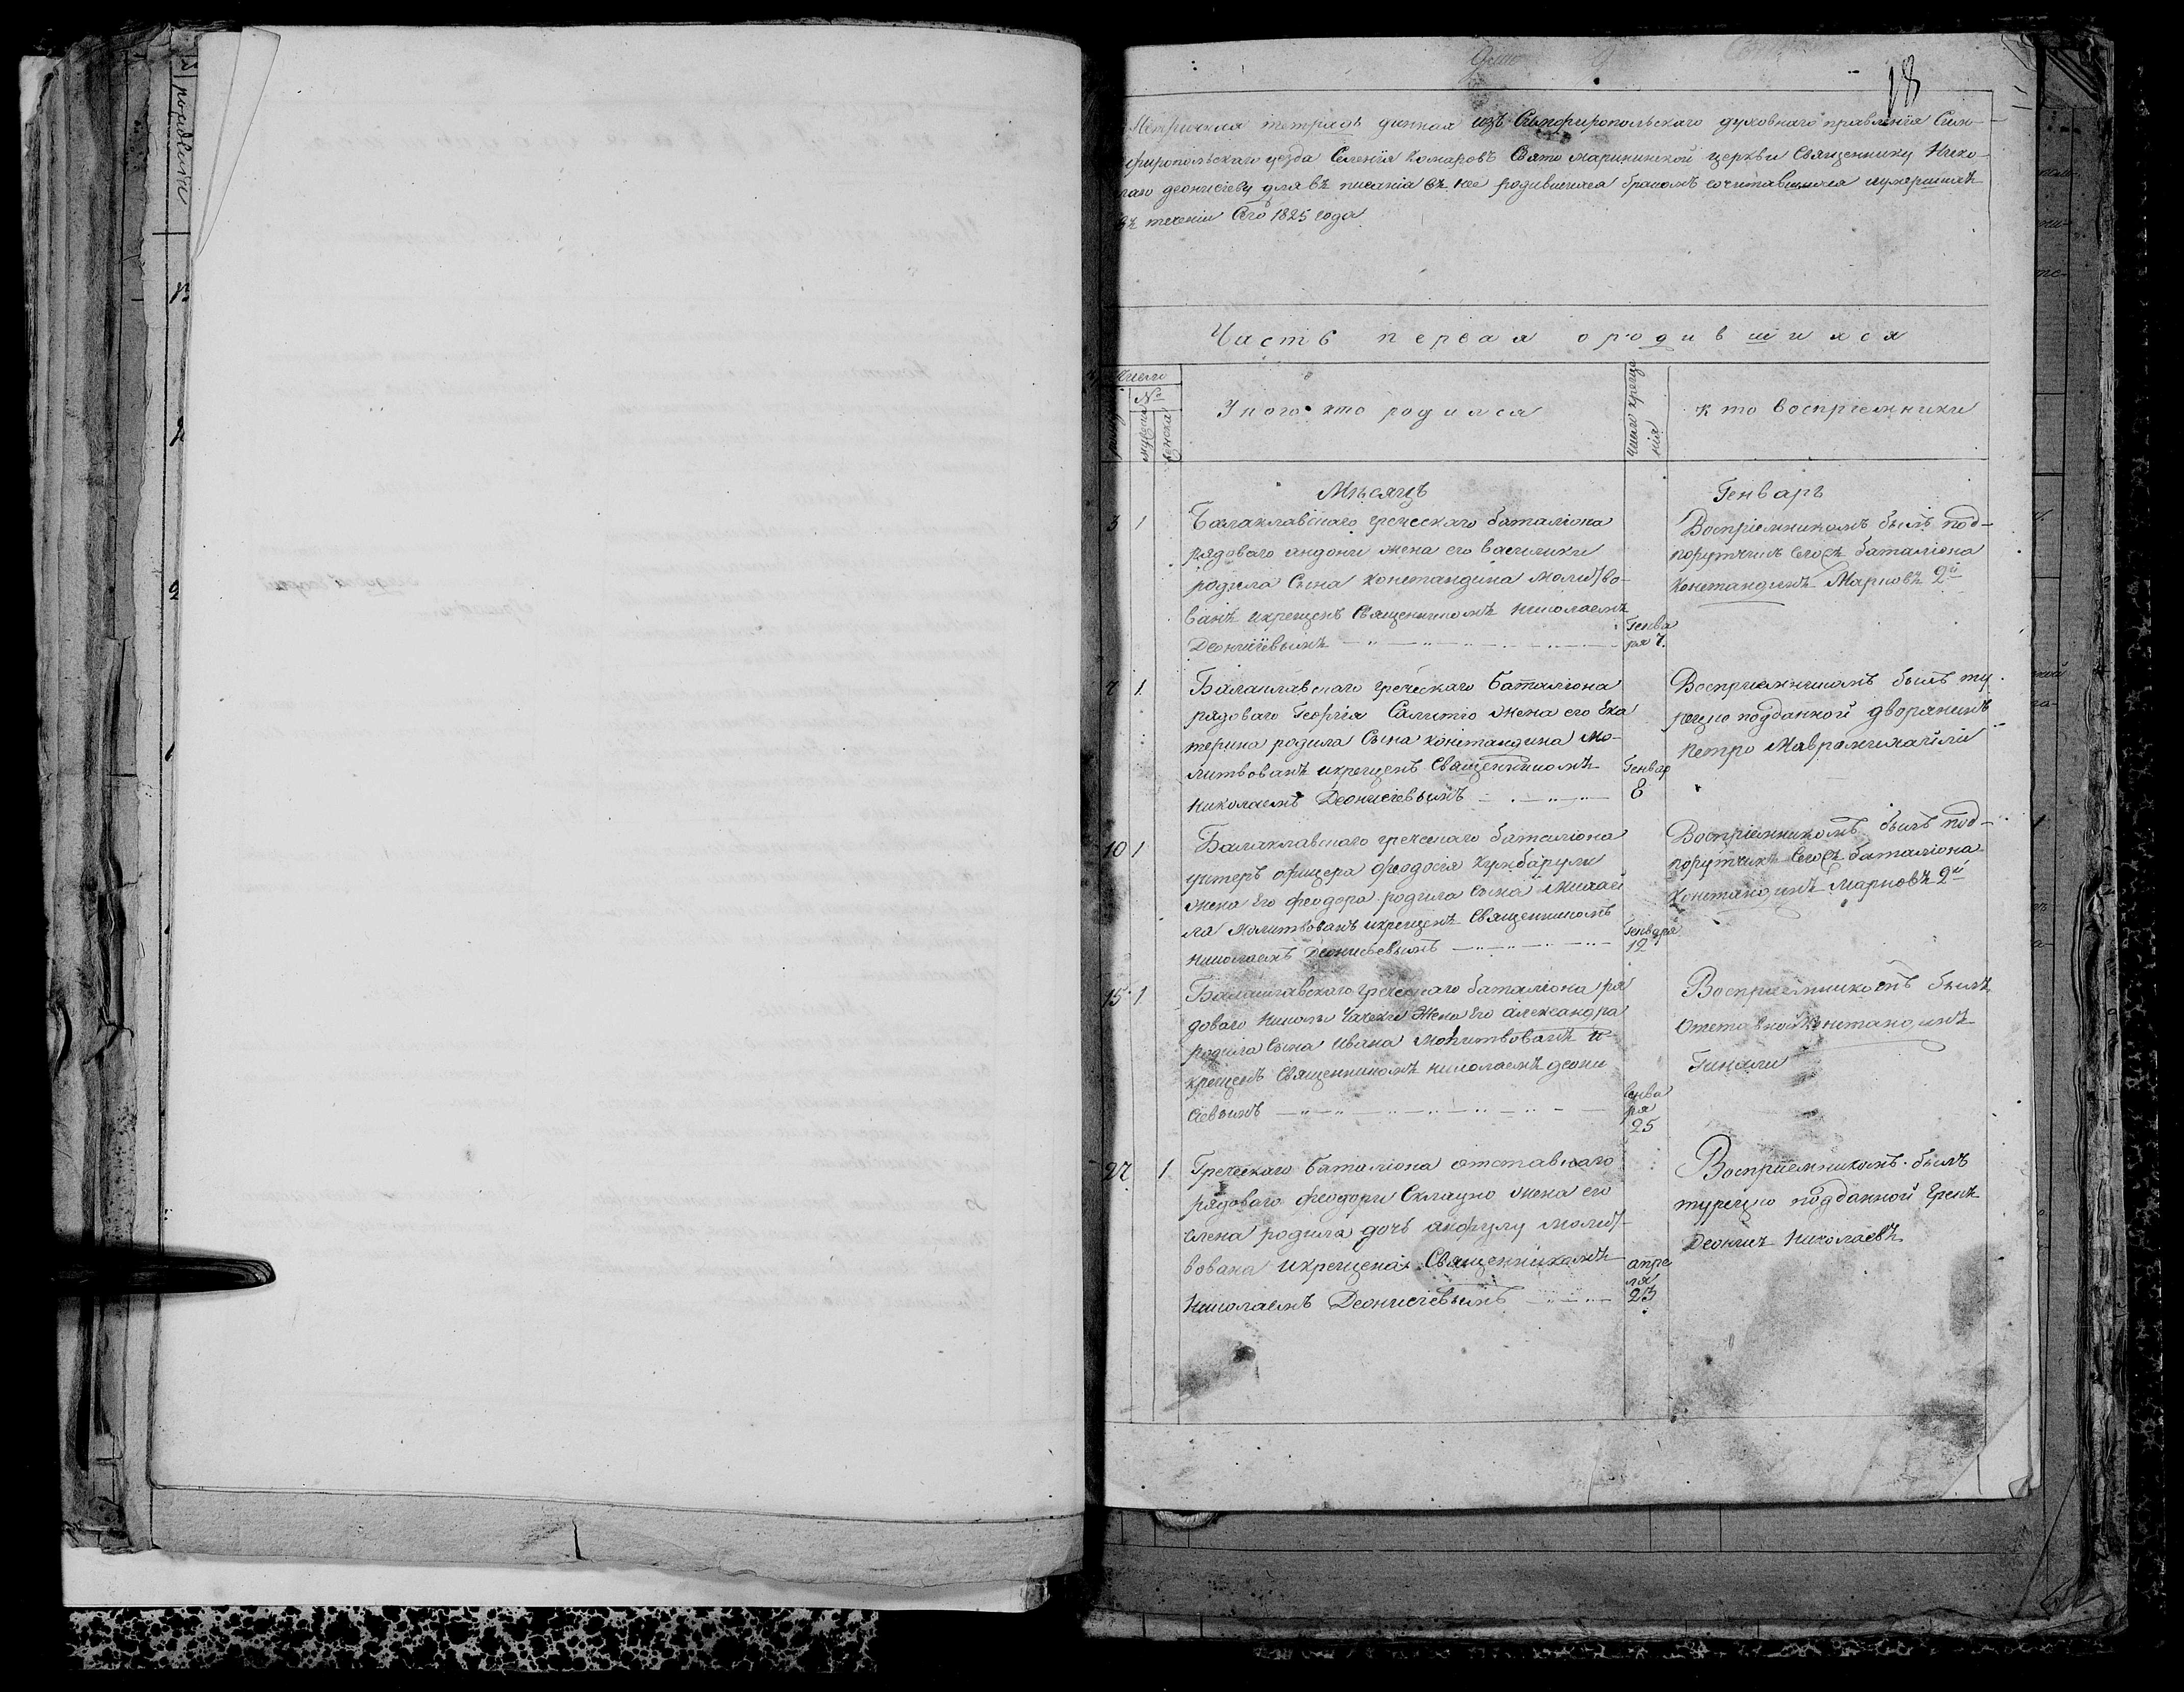 18
Метричная тетрадь данная изъ Симферопольскаго духовнаго правленія Сим-
феропольскаго уезда Селенія Комаровъ Свято маринииской церкви Священнику Нико-
лаю деонисіеву для въ писанія въ нее родившихся бракомъ сочитавшихся иумершихъ
въ теченіи Сего 1825 года
Часть первая о родившихся
Число
№
мужеска
женска
У кого кто родился
Число креще
нія
кто восприемники
Мѣсяцъ
Генварь
3
1
Балаклавскаго греческаго баталіона
рядоваго андони жена его василики
родила Сына константина молитво-
ванъ икрещенъ Священникомъ николаемъ
Деонисіевымъ
Генва
ря 7.
Воспріемникомъ былъ под-
порутчикъ Сегожъ баталіона
Константинъ Марковъ 2й
7
1
Балаклавскаго греческаго баталіона
рядоваго Георгія жена его Ека
терина родила Сына константина мо-
литвованъ икрещенъ Священникомъ
николаемъ Деонисіевымъ
Генвар
8
Воспріемникомъ былъ ту
рецко подданной дворянинъ
Петро
10
1
Балаклавскаго греческаго баталіона
унтеръ офицера феодосія
жена Его феодора родила Сына михаи
ла молитвованъ икрещенъ Священникомъ
николаемъ Деонисіевымъ
Генваря
12
Воспріемникомъ былъ под-
порутчикъ Сегожъ баталіона
Константинъ Марковъ 2й
15
1
Балаклавскаго греческаго баталіона ря
доваго Николы жена Его александра
родила Сына Ивана молитвованъ и
крещенъ Священникомъ николаемъ деони
сіевымъ
Генва
ря
25
Воспріемникомъ былъ
Отставной Константинъ
Гинали
27
1
Греческаго баталіона отставнаго
рядоваго феодори жена его
елена родила дочь молит
вована икрещена Священникомъ
николаемъ Деонисіевымъ
апре
ля
23
Воспріемникомъ былъ
турецко подданной Грекъ
Деонис Николаевъ